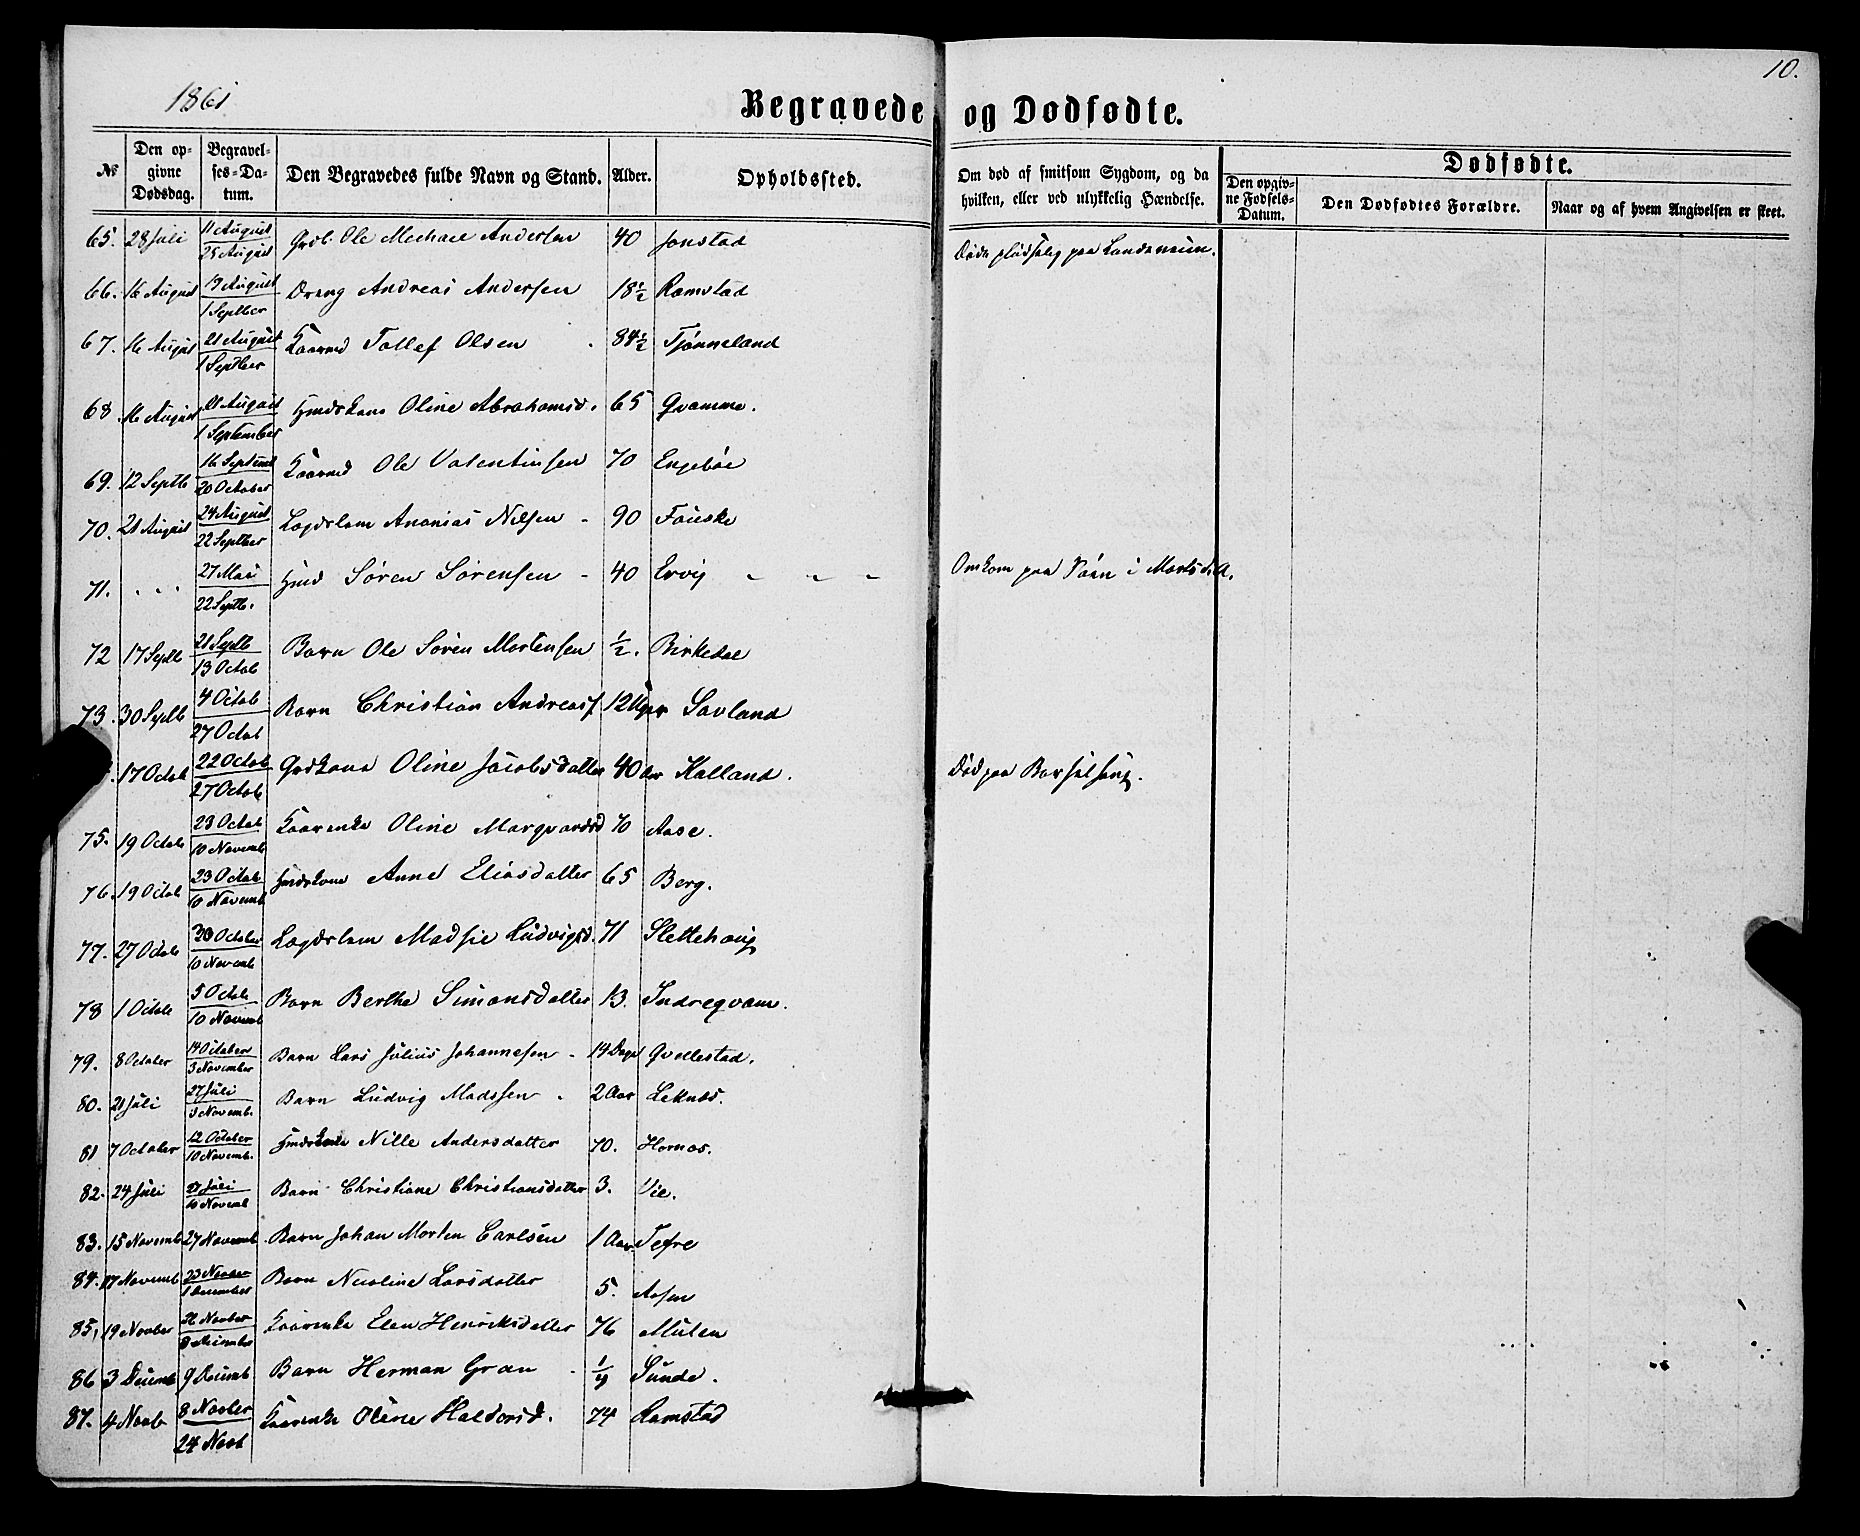 1861
10.
Begravede og Dødfødte.
№ Den opgivne Dødsdag. Begravelses-Datum. Den Begravedes fulde Navn og Stand. Alder. Opholdssted. Om død af smitsom Sygdom, og da hvilken, eller ved ulykkelig Hændelse. Dødfødte. Den opgivne Fødsels-Datum. Den Dødfødtes Forældre. Naar og af hvem Angivelsen er skeet.
65. 28 Juli 11 August 25 August Ole Michael Andersen 40 Jonstad Døde pludselig paa
66. 16 August 19 August 1 Septber Dreng Andreas Andersen 18½ Ramstad
67. 16 August 21 August 1 Septber Kaarmd Tollef Olsen 84½ Tjønneland
68. 16 August 21 August 1 September Hmdskone Oline Abrahamsd. 65 Qvamme.
69. 12 Septb 16 Septemb 20 October Kaarmd Ole Valentinsen 70 Engebøe
70. 21 August 24 August 22 Septber Lægdslem Ananias Nilsen 90 Fauske
71. 27 Mai 22 Septb. Hmd Søren Sørensen 40 Ervig Omkom paa Søen i Marts d. A.
72 17 Septb 21 Septb 13 Octob Barn Ole Søren Mortensen ½. Birkedal
73. 30 Septb 4 Octob 27 Octob Barn Christian Andreass 12 Uger Savland
17 Octob 22 Octob 27 Octob Gdskone Oline Jacobsdatter 40 Aar Kalland. Død paa Barselseng.
75. 19 Octob 23 Octob 10 Novemb Kaarenke Oline Marqvardsd 70 Aase.
76. 19 Octob 23 Octob 10 Novemb Hmdskone Anne Eliasdatter 65 Berg.
77. 27 Octob 30 October 10 Novemb Lægdslem Madsie Ludvigsd. 71 Slettehaug
78 1 Octob 5 Octob 10 Novemb Barn Berthe Simonsdatter 13. Indreqvam.
79. 8 October 14 October 3 November Barn Lars Julius Johannesen 14 Dage Qvellestad.
80. 21 Juli 27 Juli 3 Novemb. Barn Ludvig Madssen 2 Aar Leknes.
81 7 October 12 October 10 Novemb. Nille Andersdatter 70. Hornæs.
82. 24 Juli 27 Juli 10 Novemb Barn Christiane Christiansdatter 3. Vie.
83. 15 Novemb 27 Novemb. Barn Johan Morten Carlsen 1 Aar Tefre
84. 17 Novemb 23 Novber 1 December Barn Nicoline Larsdatter 5. Aasen
85, 19 Novber 26 Novber 8 December Kaarenke Elen Henriksdatter 76 Mulen
86 3 Decemb 9 Decemb Barn Herman Gran Sunde.
87. 4 Novb 8 Novber 24 Novb Kaarenke Oline Haldorsd. 74 Ramstad